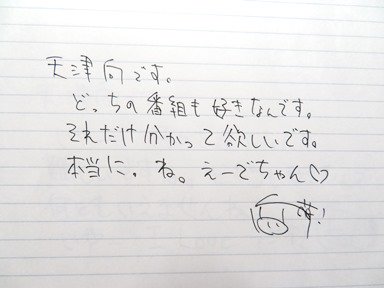 天津向です。
どっちの番組も好きなんです。
それだけ分かって欲しいです。
本当に。ね。えーでちゃん♡